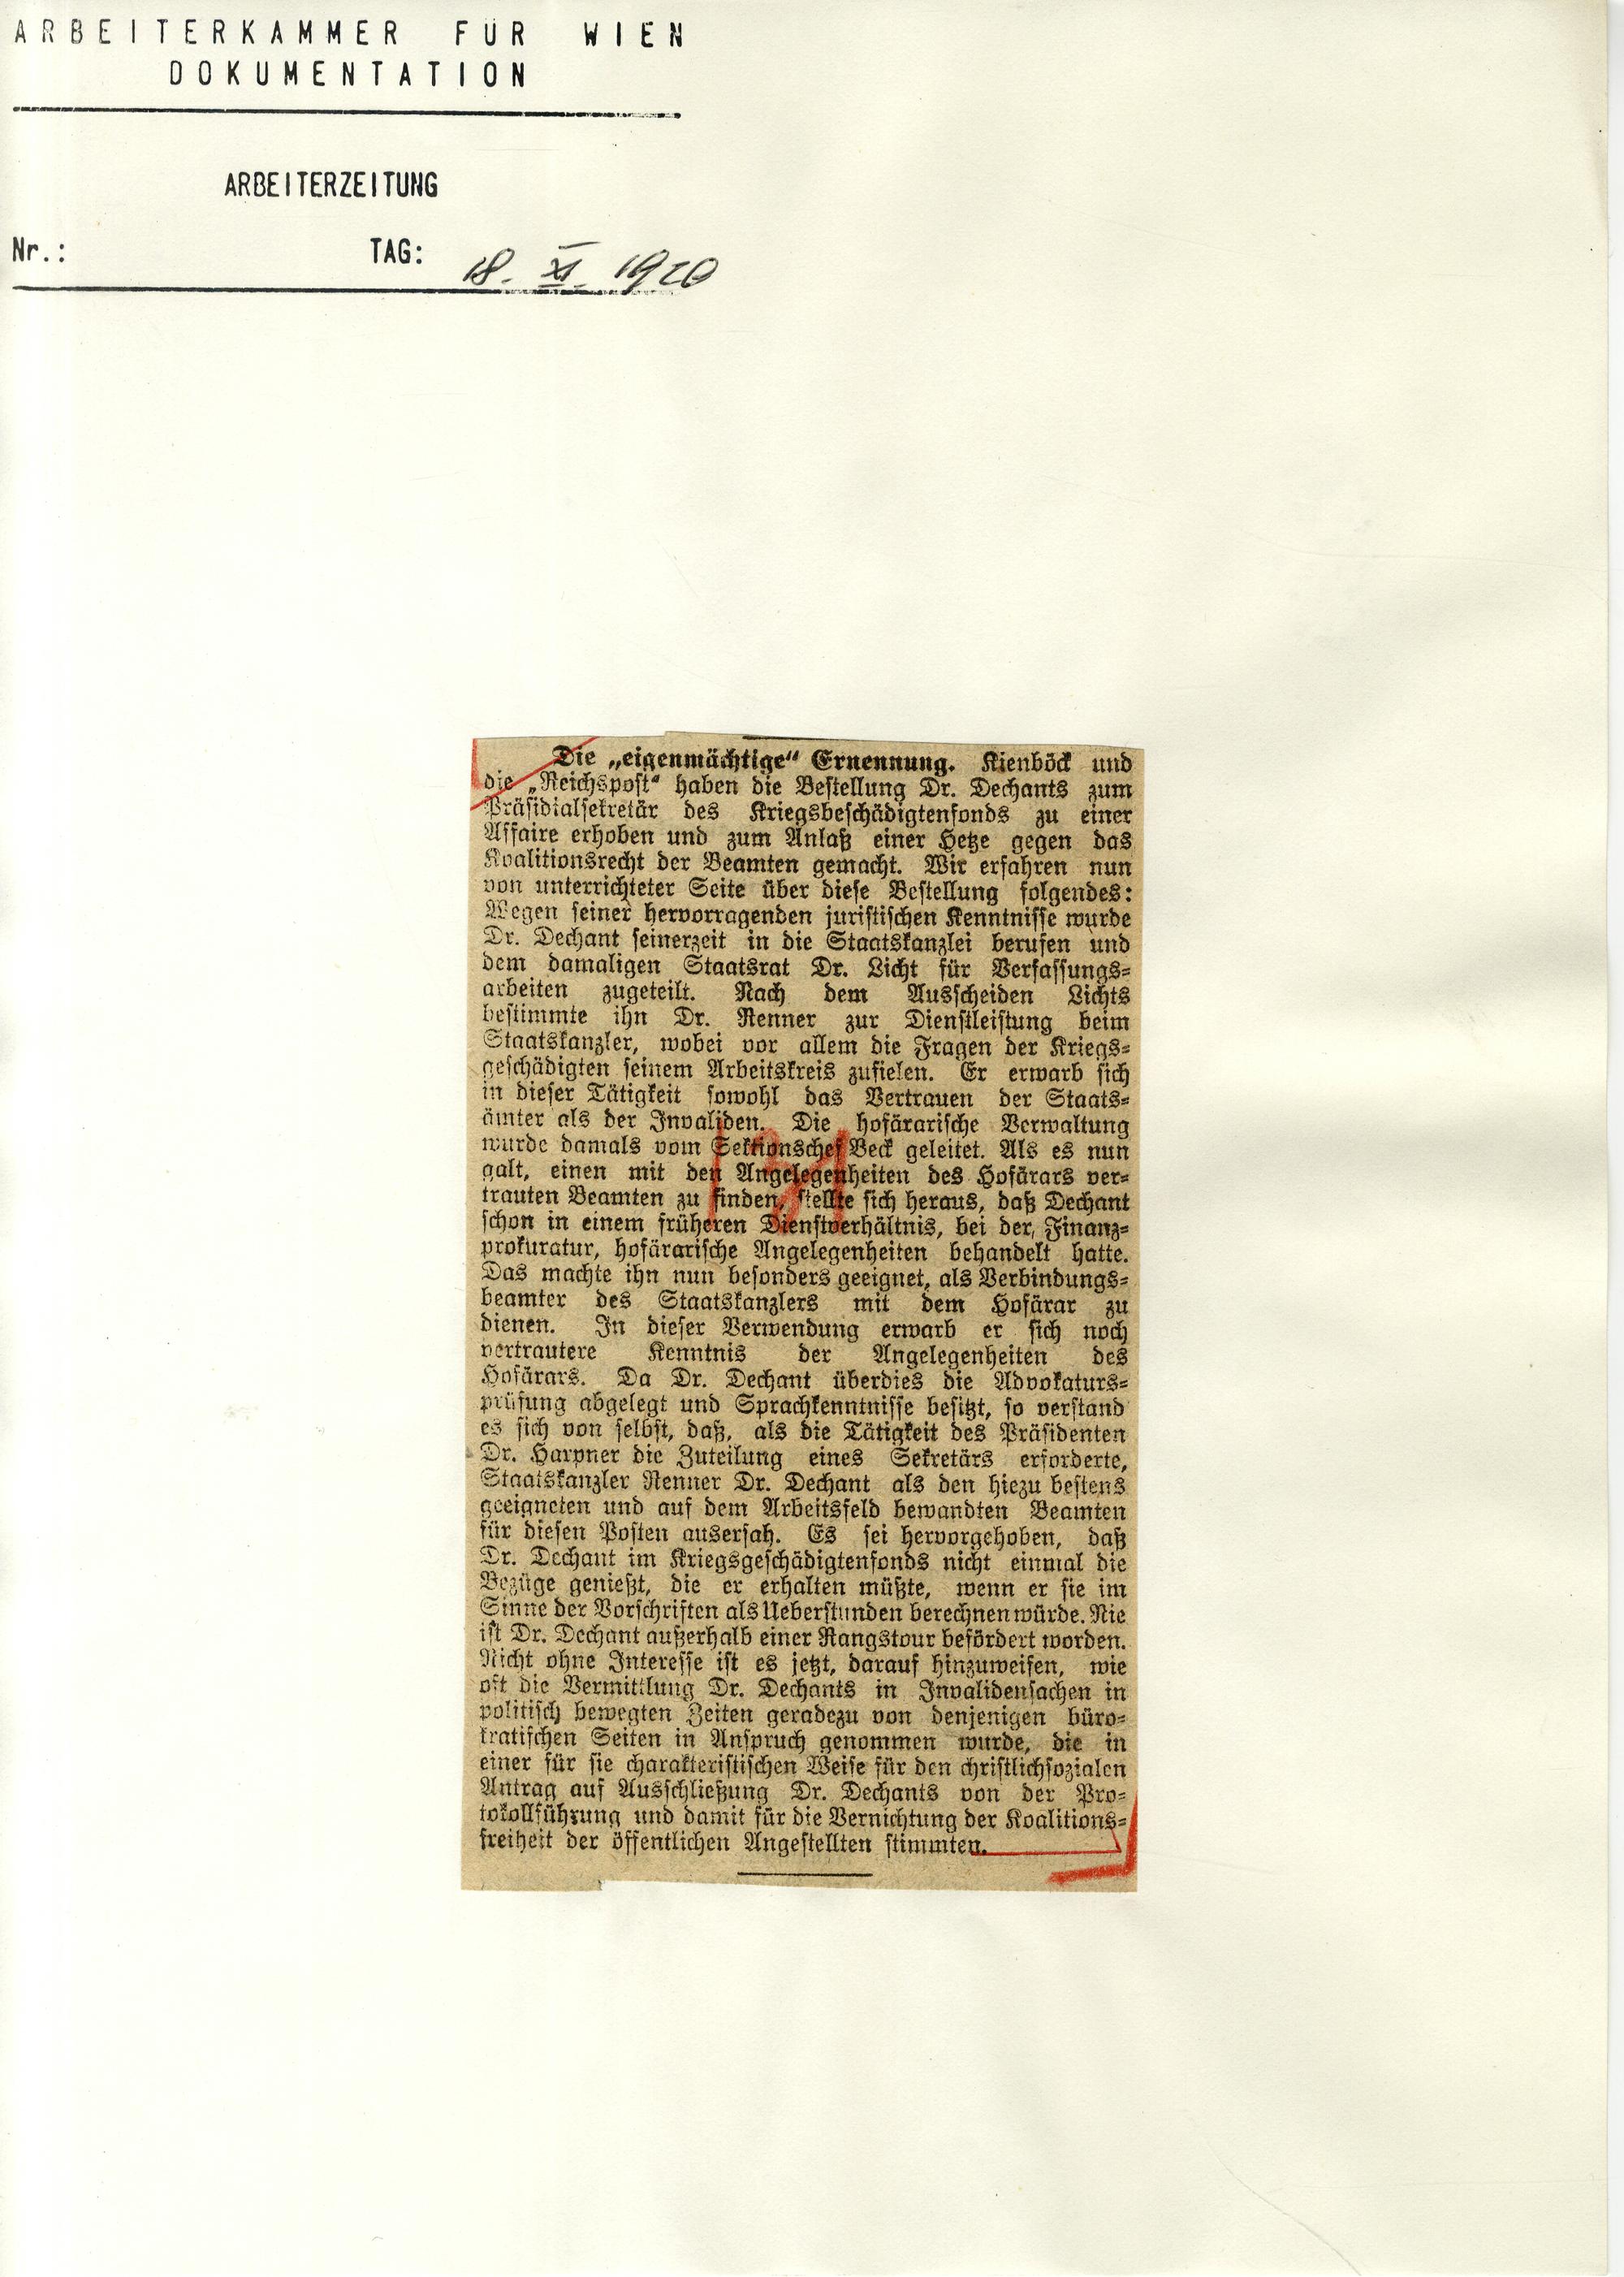 ARBEITERKAMMER FÜR WIEN
DOKUMENTATION
ARBEITERZEITUNG
Nr.: TAG: 18. XI. 1920
Die „eigenmächtige“ Ernennung. Kienböck und
die „Reichspost“ haben die Bestellung Dr. Dechants zum
Präsidialsekretär des Kriegsbeschädigtenfonds zu einer
Affaire erhoben und zum Anlaß einer Hetze gegen das
Koalitionsrecht der Beamten gemacht. Wir erfahren nun
von unterrichteter Seite über diese Bestellung folgendes:
Wegen seiner hervorragenden juristischen Kenntnisse wurde
Dr. Dechant seinerzeit in die Staatskanzlei berufen und
dem damaligen Staatsrat Dr. Licht für Verfassungs-
arbeiten zugeteilt. Nach dem Ausscheiden Lichts
bestimmte ihn Dr. Renner zur Dienstleistung beim
Staatskanzler, wobei vor allem die Fragen der Kriegs-
geschädigten seinem Arbeitskreis zufielen. Er erwarb sich
in dieser Tätigkeit sowohl das Vertrauen der Staats-
ämter als der Invaliden. Die hofärarische Verwaltung
wurde damals vom Sektionschef Beck geleitet. Als es nun
galt, einen mit den Angelegenheiten des Hofärars ver-
trauten Beamten zu finden, stellte sich heraus, daß Dechant
schon in einem früheren Dienstverhältnis, bei der Finanz-
prokuratur, hofärarische Angelegenheiten behandelt hatte.
Das machte ihn nun besonders geeignet, als Verbindungs-
beamter des Staatskanzlers mit dem Hofärar zu
dienen. In dieser Verwendung erwarb er sich noch
vertrautere Kenntnis der Angelegenheiten des
Hofärars. Da Dr. Dechant überdies die Advokaturs-
prüfung abgelegt und Sprachkenntnisse besitzt, so verstand
es sich von selbst, daß, als die Tätigkeit des Präsidenten
Dr. Harpner die Zuteilung eines Sekretärs erforderte,
Staatskanzler Renner Dr. Dechant als den hiezu bestens
geeigneten und auf dem Arbeitsfeld bewandten Beamten
für diesen Posten ausersah. Es sei hervorgehoben, daß
Dr. Dechant im Kriegsgeschädigtenfonds nicht einmal die
Bezüge genießt, die er erhalten müßte, wenn er sie im
Sinne der Vorschriften als Ueberstunden berechnen würde. Nie
ist Dr. Dechant außerhalb einer Rangstour befördert worden.
Nicht ohne Interesse ist es jetzt, darauf hinzuweisen, wie
oft die Vermittlung Dr. Dechants in Invalidensachen in
politisch bewegten Zeiten geradezu von denjenigen büro-
kratischen Seiten in Anspruch genommen wurde, die in
einer für sie charakteristischen Weise für den christlichsozialen
Antrag auf Ausschließung Dr. Dechants von der Pro-
tokollführung und damit für die Vernichtung der Koalitions-
freiheit der öffentlichen Angestellten stimmten.